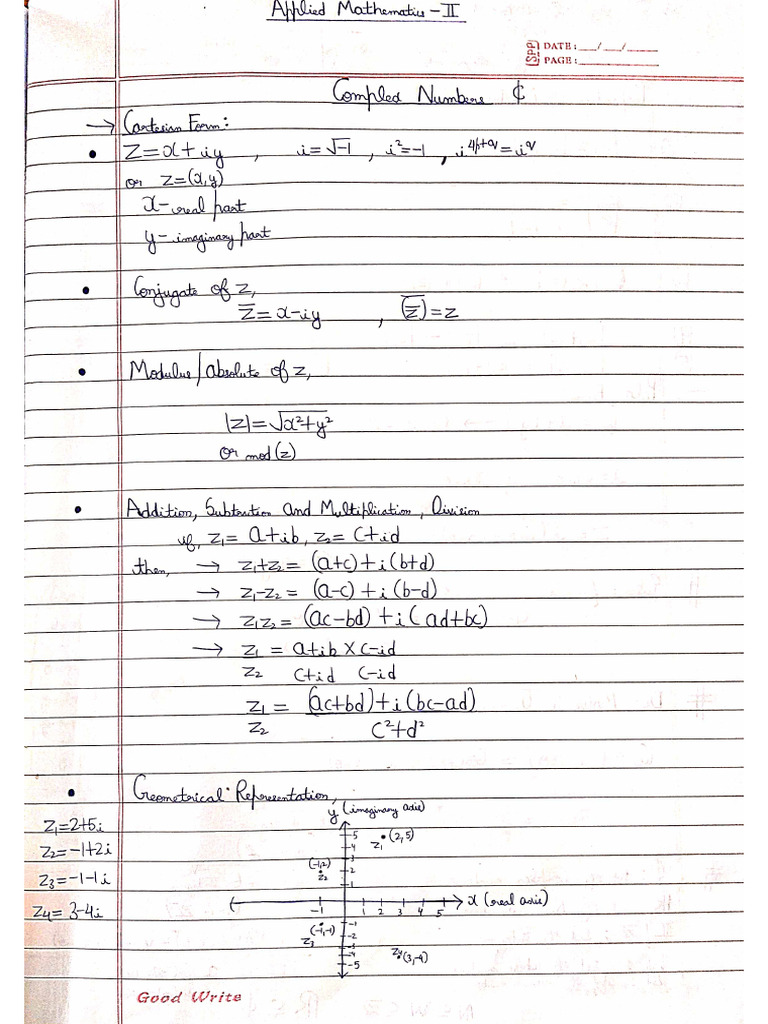 Applied Mathematics-II
SPP DATE: __/__/__
PAGE:
Compled Numbers ₵
→ Cartesian Form:
• Z=x+iy , i=√-1 , i²=-1 , i^(4p+q)=i^q
or z=(x,y)
x-real part
y-imaginary part
• Conjugate of z,
z̅=x-iy , (z̅)̅=z
• Modulus/absolute of z,
|z|=√x²+y²
or mod(z)
• Addition, Subtraction and Multiplication, Division
if, z₁= a+ib, z₂= c+id
then, → z₁+z₂ = (a+c)+i(b+d)
→ z₁-z₂ = (a-c)+i(b-d)
→ z₁z₂ = (ac-bd)+i(ad+bc)
→ z₁ = a+ib × c-id
z₂ c+id c-id
z₁ = (ac+bd)+i(bc-ad)
z₂ c²+d²
• Geometrical Representation,
y (imaginary axis)
z₁=2+5i
z₂=-1+2i
z₃=-1-1i
z₄= 3-4i
5 z₁ (2,5)
4
3
(-1,2) 2
z₂
1
-1 1 2 3 4 5 x (real axis)
(-1,-1) -1
z₃ -2
-3
-4 z₄ (3,-4)
-5
Good Write